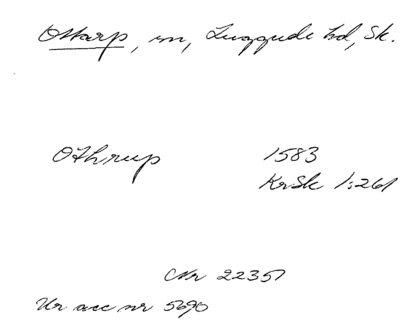 Ottarp, sn, Luggude hd, Sk.
Othrup 1583
KrSk 1:261
CNr 22357
Ur acc nr 5690